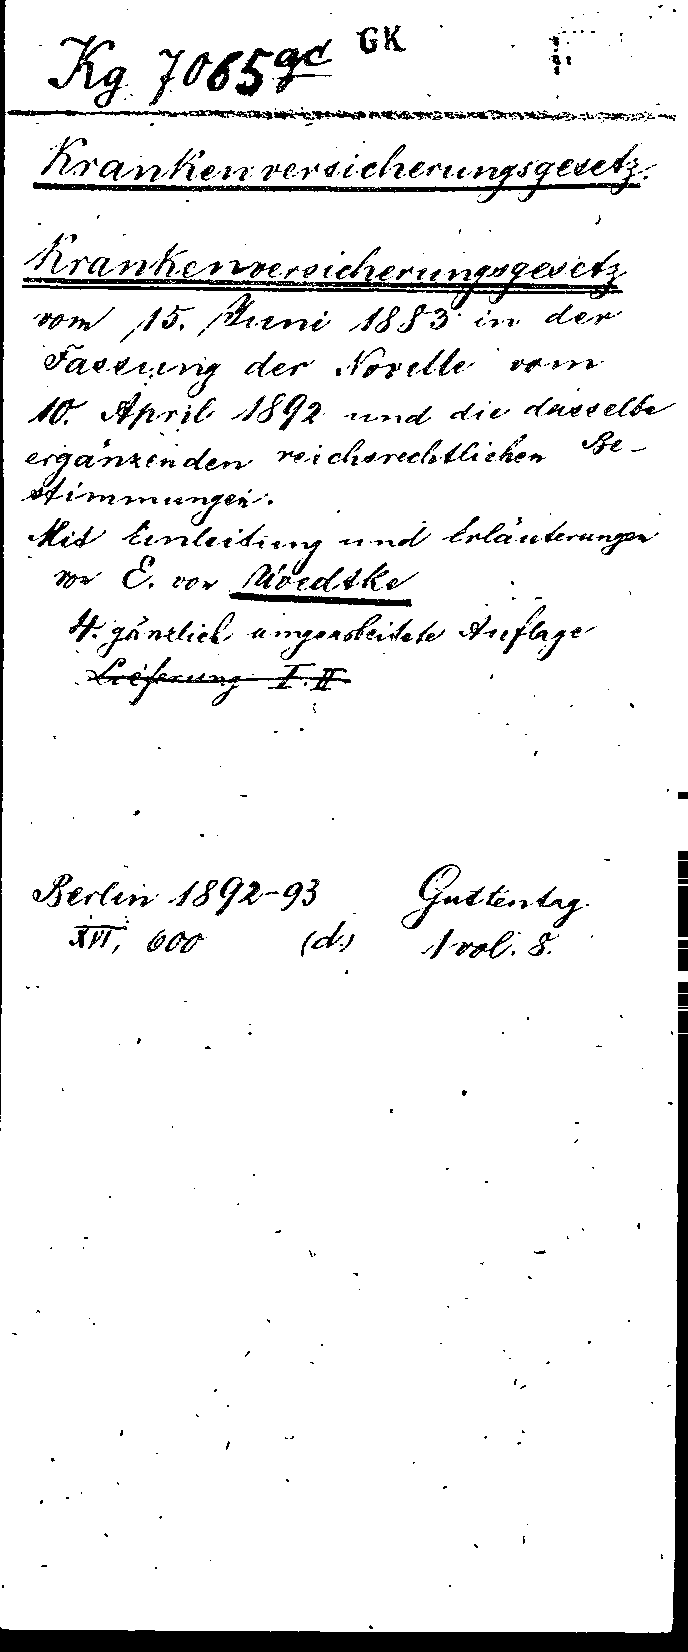 Kg 7065 gd GK
Krankenversicherungsgesetz.
Krankenversicherungsgesetz
vom 15. Juni 1883 in der
Fassung der Novelle vom
10. April 1892 und die dasselbe
ergänzenden reichsrechtlichen Be-
stimmungen.
Mit Einleitung und Erläuterungen
von E. von Woedtke
4. gänzlich umgearbeitete Auflage
Lieferung I. II
Berlin 1892-93 Guttentag
XVI, 600 (d.) 1 vol. 8.